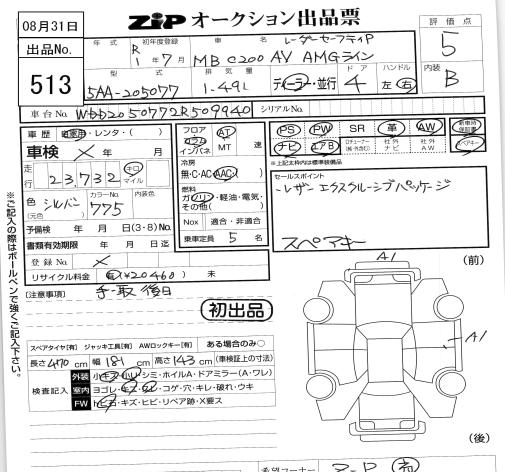 08月31日
ZIP オークション出品票
出品No.
513
評価点
5
年式
初年度登録
車名
R1年7月
レーダーセーフティP
MB C200 AV AMGライン
内装
B
型式
排気量
ドア
ハンドル
5AA-205077
1.49L
ディーラー・並行
4
左 右
車台No. WDD2050772R509940
シリアルNo.
車歴 自家用・レンタ・( )
車検 × 年 月
走行 23,732 キロ マイル
色 (元色) シルバー
カラーNo. 775
内装色
予備検 年 月 日(3・8)No.
書類有効期限 年 月 日迄
登録No. ×
リサイクル料金 有(¥20460) 未
フロア コラム インパネ
AT
MT 速
冷房
無・C・AC・AAC・( )
燃料
ガソリン・軽油・電気・その他( )
Nox 適合・非適合
乗車定員 5 名
PS PW SR 革 AW 新車時保証書
ナビ エアB 社外ナビ 社外AW スペアキー
※上記太枠内は標準装備品
セールスポイント
レザーエクスクルーシブパッケージ
スペアキー
[注意事項]
手取後日
初出品
スペアタイヤ[有] ジャッキ工具[有] AWロックキー[有] ある場合のみ○
長さ 470 cm 幅 181 cm 高さ 143 cm (車検証上の寸法)
検査記入
外装 小キズ・小凹・シミ・ホイルA・ドアミラー(A・ワレ)
室内 ヨゴレ・キズ・スレ・コゲ・穴・キレ・破れ・ウキ
FW ト ビ石・キズ・ヒビ・リペア跡・X要ス
A1
(前)
A1
(後)
※ご記入の際はボールペンで強くご記入下さい。
希望コーナー